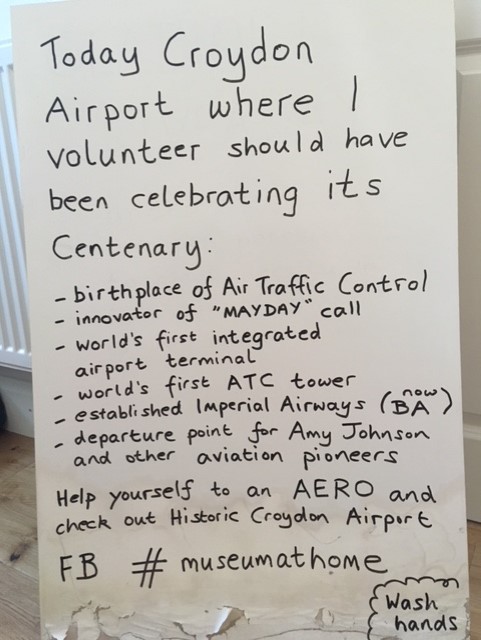 Today Croydon
Airport where I
volunteer should have
been celebrating its
Centenary:
- birthplace of Air Traffic Control
- innovator of "MAYDAY" call
- world's first integrated
airport terminal
- world's first ATC tower
- established Imperial Airways (now BA)
- departure point for Amy Johnson
and other aviation pioneers
Help yourself to an AERO and
check out Historic Croydon Airport
FB # museumathome
Wash
hands